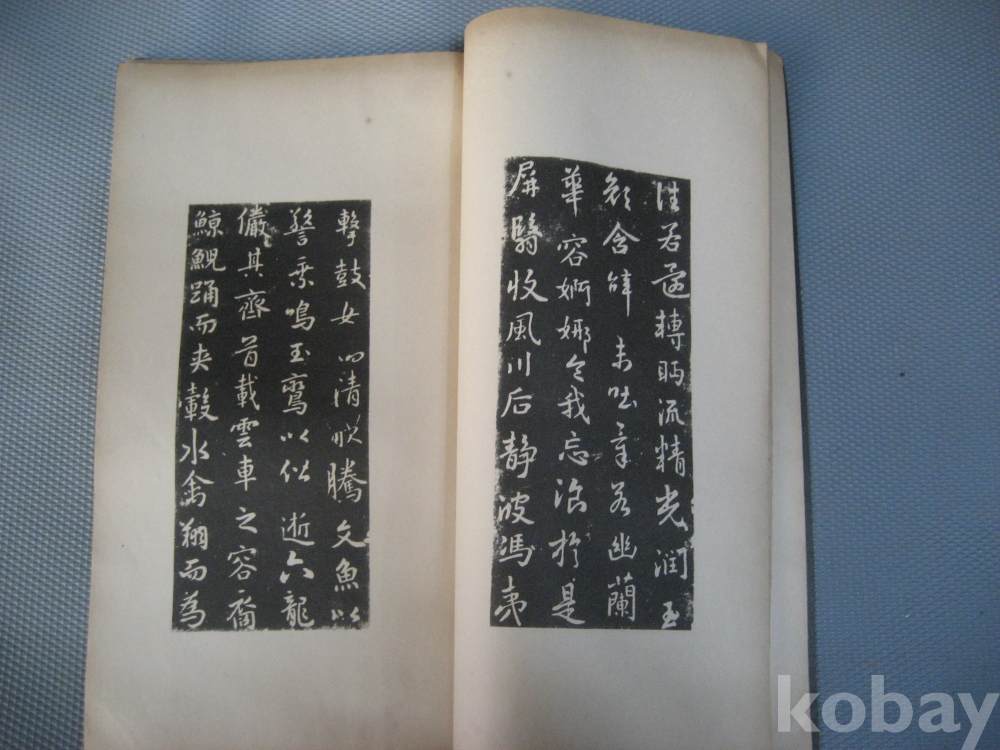 往若還轉眄流精光潤玉
顏含辭未吐氣若幽蘭
華容婀娜令我忘飡於是
屏翳收風川后静波馮夷
擊鼓女媧清歌騰文魚以
警乘鳴玉鸞以偕逝六龍
儼其齊首載雲車之容裔
鯨鯢踊而夾轂水禽翔而為
kobay